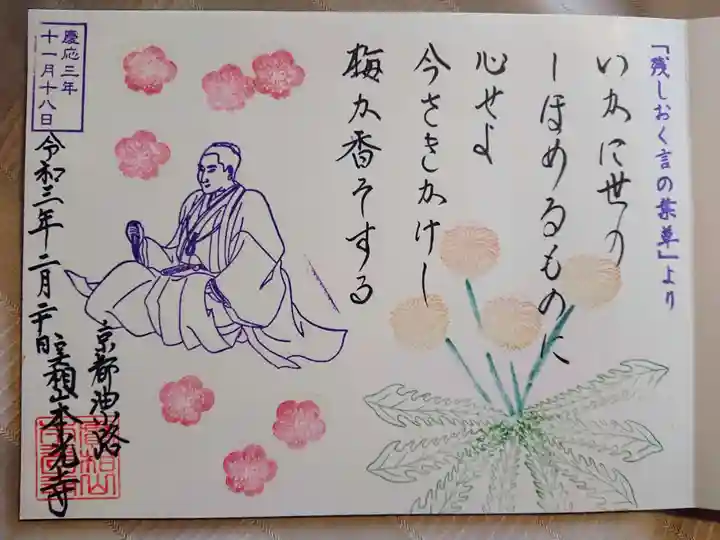 「残しおく言の葉草」より
いかに世の
しほめるものに
心せよ
今さきかけし
梅か香そする
慶応三年
十一月十八日
京都油小路
令和三年二月二十日 実相山本光寺